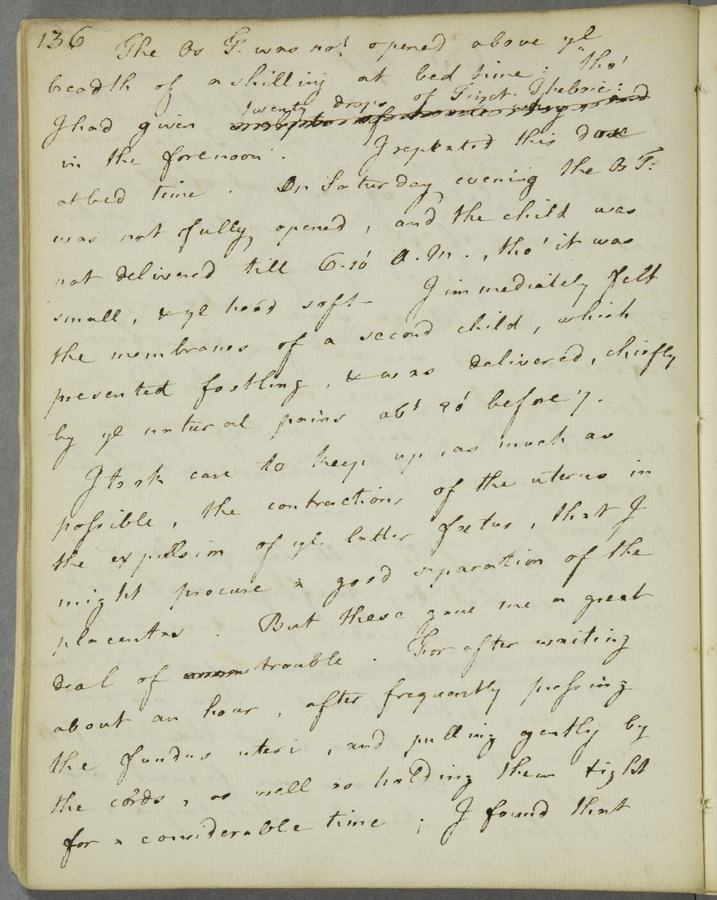 136 The Os T. was not opened above ye
breadth of a shilling at bed time: tho'
twenty drops of Tinct. Thebaic:
I had given
in the forenoon. I repeated this dose
at bed time. On Saturday evening the Os T:
was not fully opened, and the child was
not delivered till 6.10' A.M., tho' it was
small, & ye head soft I immediately felt
the membranes of a second child, which
presented footling, & was delivered, chiefly
by ye natural pains abt 20' before 7.
I took care to keep up, as much as
possible, the contractions of the uterus in
the expulsion of ye latter foetus, that I
might procure a good separation of the
placentas. But these gave me a great
deal of trouble. For after waiting
about an hour, after frequently pressing
the fundus uteri, and pulling gently by
the cords, as well as holding them tight
for a considerable time; I found that